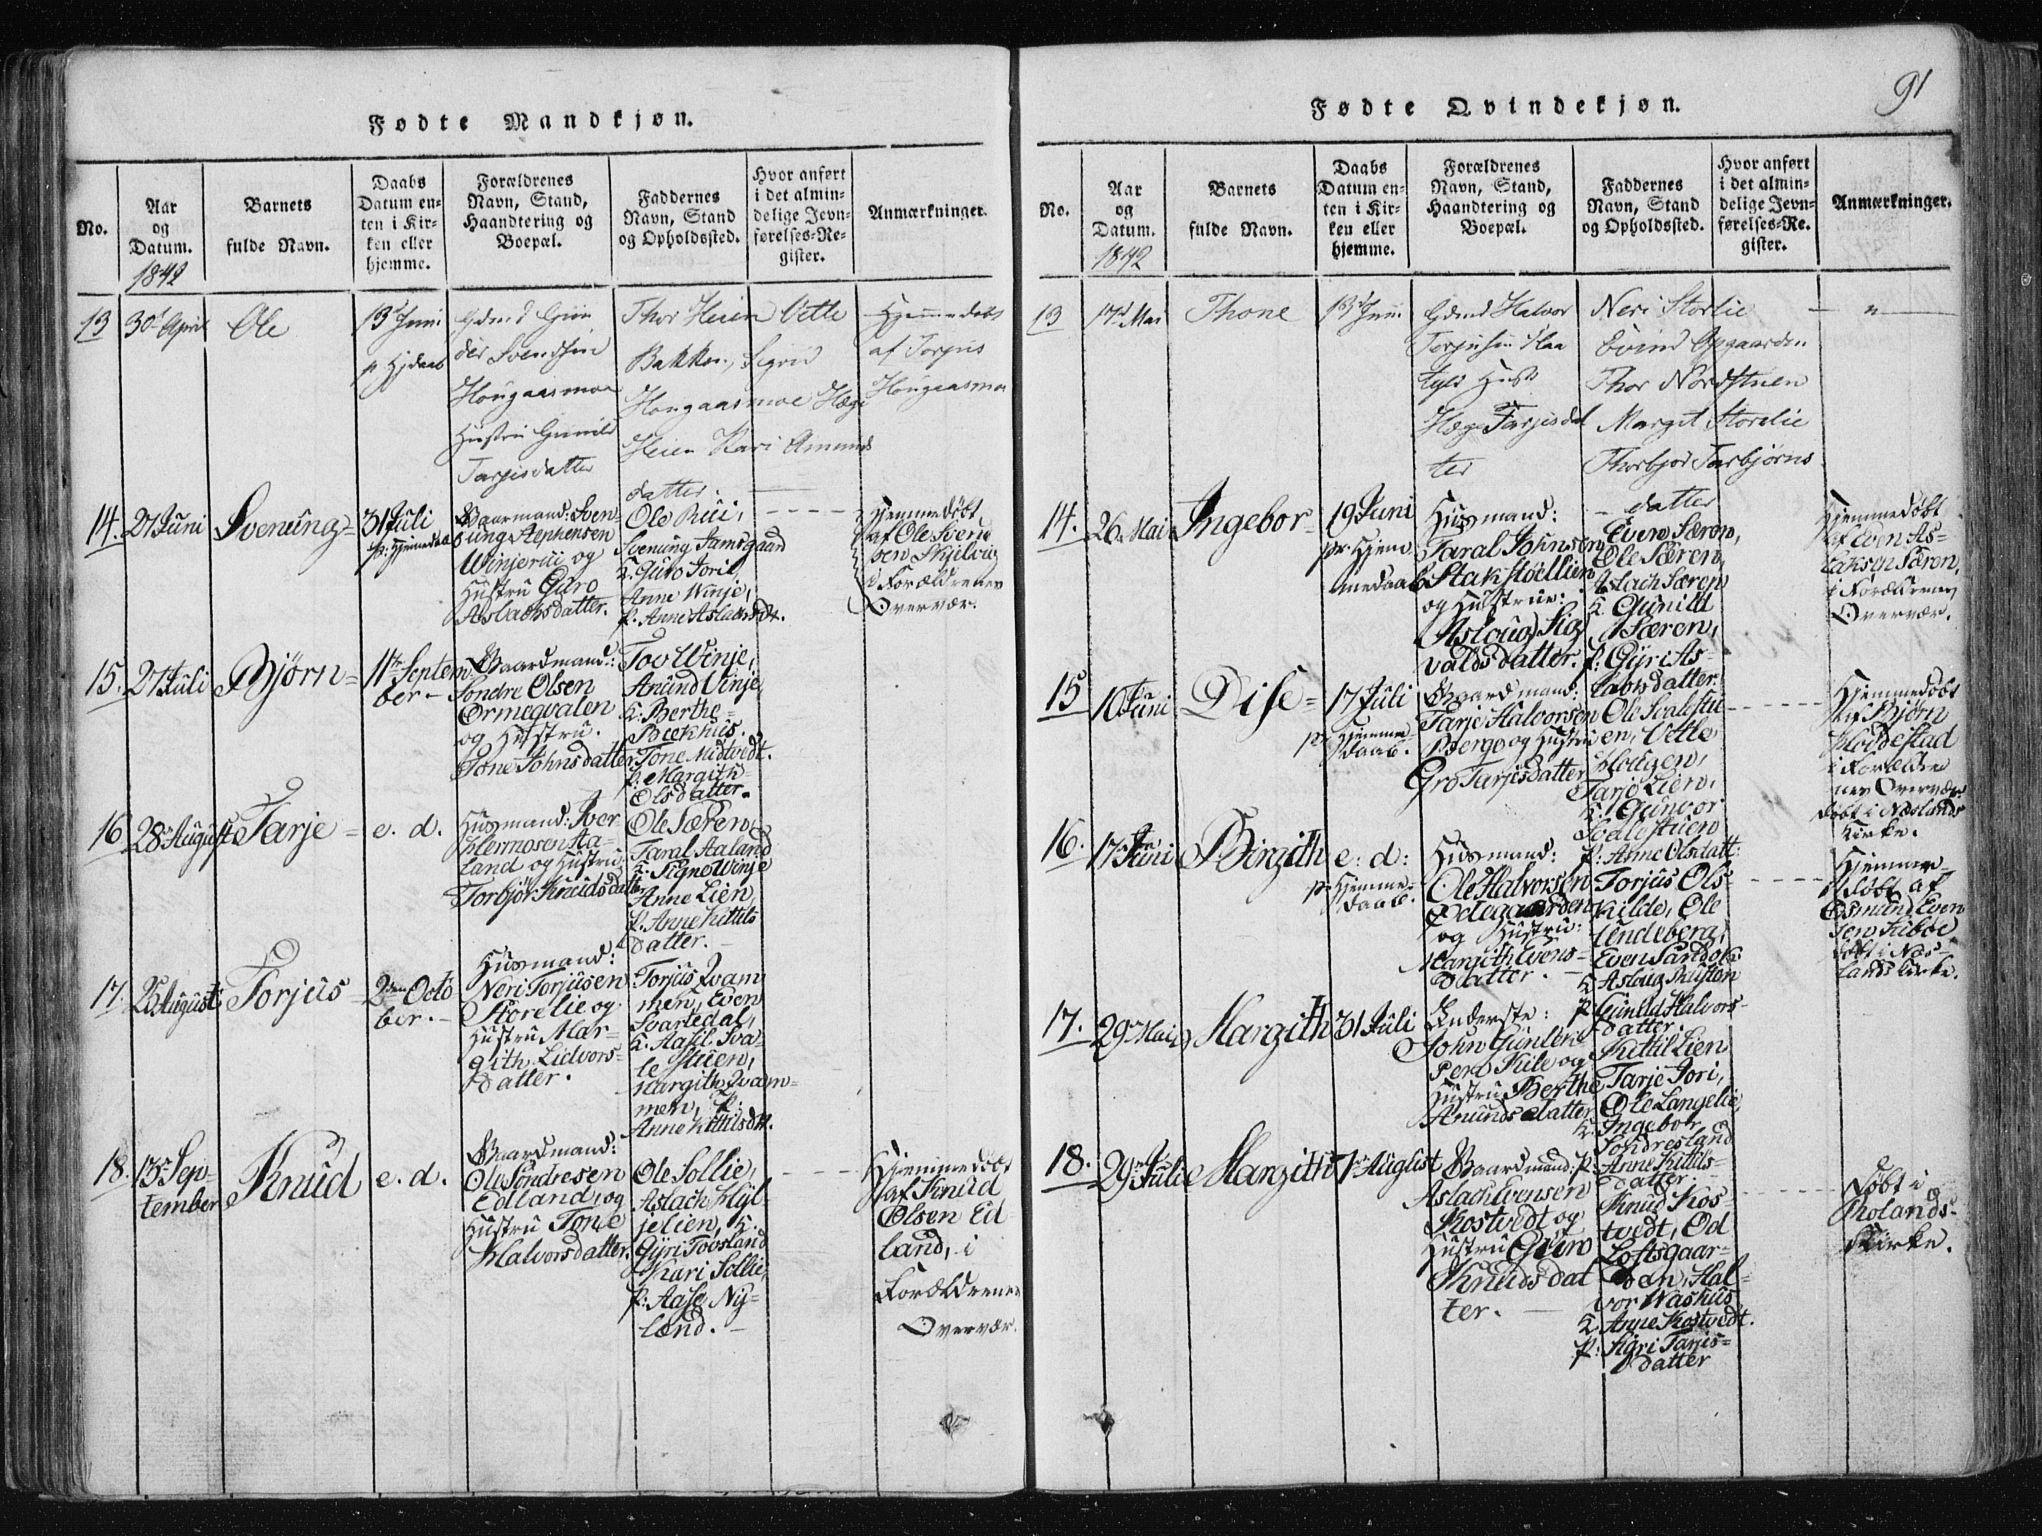 Fødte Mandkjøn.
No.
Aar
og
Datum.
1842
Barnets
fulde Navn.
Daabs
Datum en-
ten i Kir-
ken eller
hjemme.
Forældrenes
Navn, Stand,
Haandtering og
Boepæl.
Faddernes
Navn, Stand
og Opholdssted.
Hvor anført
i det almin-
delige Jevn-
førelses-Re-
gister.
Anmærkninger.
13
30 April
Ole
13 Juni
Svendsen
Hougaasmoe
Hustru Gunild
Tarjisdatter
Thor Heien Vetle
Bakken, Sigrid
Hougaasmoe Hæge
Heien Kari Amunds
datter.
Hjemmedøbt
af Torjus
Hougaasmoe
14.
27 Juni
Svenung
31 Juli
Gaarmand: Sven-
ung Stephensen
Winjerui og
Hustru Guro
Aslachsdatter.
Ole Rui,
Svenung Jamsgaard
K. Guro Joril
Anne Winje,
P. Anne Aslachsdt.
Hjemmedøbt
af Ole Svend
sen Skjelvig
i Forældrenes
Overvær.
15.
27 Juli
Bjørn
11te Septem
ber
Gaardmand:
Sondre Olsen
Ormegvalen
og Hustru.
Tone Johnsdatter
Tov Winje,
Anund Vinje,
K. Berthe
Beekhus.
Tone Midtvedt.
P. Margith
Olsdatter.
16
28 August
Tarje
e. d.
Husmand: Iver
Hermosen Aa-
land og Hustru
Torbjør Knudsdatter
Ole Særen,
Taral Aaland
K. Signe Winje
Anne Lien,
P. Anne Kittils
datter.
17.
25 August
Torjus
2den Octo
ber.
Husmand:
Neri Torjusen
Storelie og
Hustru Mar-
gith Lidvors-
datter.
Torjus Qvam
men, Even
Svartedal,
K. Aasil Sva-
le Stuen,
Margith Qvam-
men, P:
Anne Kittilsdtt.
18.
13 Sep-
tember
Knud
e. d.
Gaardmand:
Ole Sondresen
Edland, og
Hustru Tone
Halvorsdatter.
Ole Sollie,
Aslach Kyl-
jelien, K.
Gyri Tovsland
Kari Sollie,
P. Aase Ny-
land.
Hjemmedøbt
af Knud
Olsen Ed
land, i
Forældrenes
Overvær.
91
Fødte Qvindekjøn.
No.
Aar
og
Datum.
1842
Barnets
fulde Navn.
Daabs
Datum en-
ten i Kir-
ken eller
hjemme.
Forældrenes
Navn, Stand,
Haandtering og
Boepæl.
Faddernes
Navn, Stand
og Opholdssted.
Hvor anført
i det almin-
delige Jevn-
førelses-Re-
gister.
Anmærkninger.
13
17 Mai
Thone
13 Juni
Gdmd Halvor
Hust
Hæge Tarjisdat
ter
Neri Storlie
Eivind Opgaarden
Thor Nordstuen
Margit Storelie
Thorbjør Torbjørns
datter
14.
26 Mai
Ingebor
19 Juni
pr. Hjem
medaab
Husmand:
Taral Johnsen
Stakstøellien
og Hustrue:
Asloug Sig
valdsdatter.
Even Særen,
Ole Særen,
Aslach Særen
K. Gunild
Særen,
P. Gyri As-
laksdatter
Hjemmedøbt
af Even As-
laksen Særen,
i Forældrenes
Overvær.
15
10 Juni
Dise
17 Juli
pr. Hjemme
daab.
Gaardmand:
Tarje Halvorsen
Berge og Hustru
Gro Tarjisdatter
Ole Svalestu
en, Vetle
Hodgen,
Tarje Lien,
K. Gunvor
Svalestuen
P. Anne Olsdatt:
Hjemmedøbt
af Bjørn
Kloddestad
i Forældre
nes Overvær
døbt i Næslands
Kirke.
16.
17 Juni
Birgith
e: d:
pr. Hjemme-
daab.
Husmand:
Ole Halvorsen
Ødegaarden
og Hustru:
Margith Evens-
datter.
Torjus Ols-
kilde, Ole
Lindeberg,
Even Sardok
K. Aslaug Rusten
P. Gunild Halvors-
datter.
Hjemme-
døbt af
Osmund Even
sen
døbt i Næs-
lands Kirke.
17.
29 Mai
Margith
31 Juli
Inderste:
John Gunlek-
Kile og
Hustru Berthe
Anundsdatter
Kittil Lien
Tarje Jori,
Ole Langelie,
K. Ingebor
Sondresland
P. Anne Kittils-
datter.
18.
29 Juli
Margith
7 August
Gaardmand:
Aslach Evensen
Kostvedt og
Hustru Guro
Knudsdat
ter.
Knud Kos
tvedt, Od
Loftsgaar-
den, Hal-
vor Washus
K. Anne Kostvedt.
P: Kari Tarjis-
datter
Døbt i
Kirke.